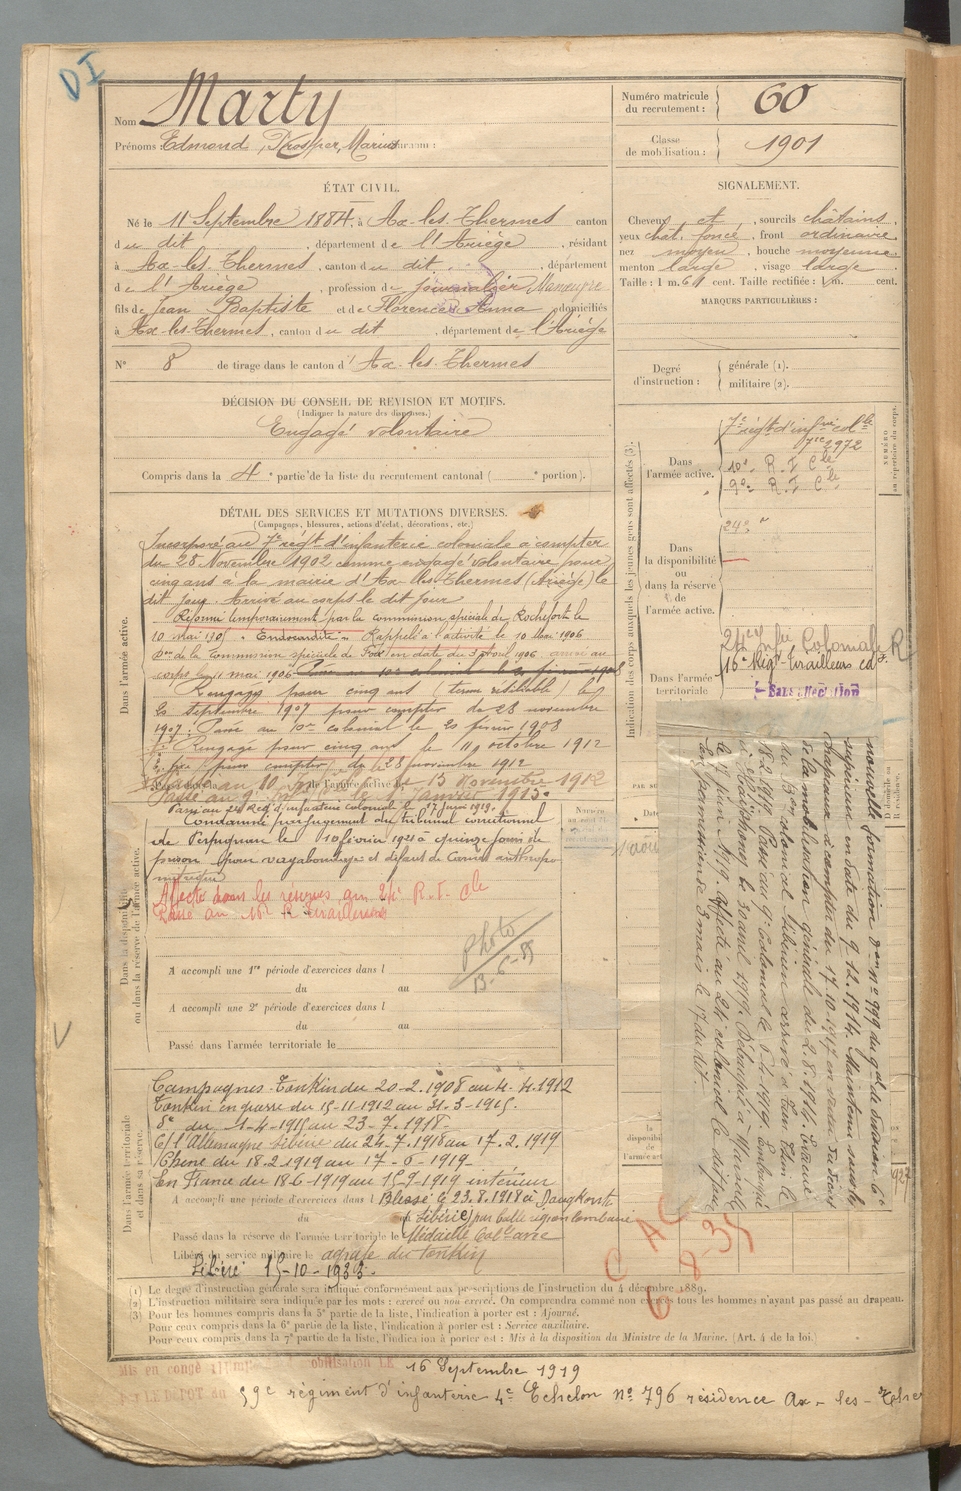 DI
Nom Marty
Prénoms : Edmond, Prosper, Marius Surnom :
Numéro matricule du recrutement : 60
Classe de mobilisation : 1901
ÉTAT CIVIL.
Né le 11 Septembre 1884, à Ax-les-Thermes canton
du dit, département de l'Ariège, résidant
à Ax-les-Thermes, canton du dit, département
de l'Ariège, profession de journalier Manœuvre
fils de Jean Baptiste et de Florence Anna domiciliés
à Ax-les-Thermes, canton du dit, département de l'Ariège
N° 8 de tirage dans le canton d'Ax-les-Thermes
SIGNALEMENT.
Cheveux et, sourcils châtains,
yeux chât. foncé, front ordinaire,
nez moyen, bouche moyenne
menton large, visage large
Taille : 1 m. 61 cent. Taille rectifiée : 1 m. cent.
MARQUES PARTICULIÈRES :
Degré d'instruction : générale (1). militaire (2).
DÉCISION DU CONSEIL DE REVISION ET MOTIFS.
(Indiquer la nature des dispenses.)
Engagé volontaire
Compris dans la 4e partie de la liste du recrutement cantonal ( e portion).
Indication des corps auxquels les jeunes gens sont affectés (3).
NUMÉRO au répertoire du corps.
Dans l'armée active.
7e régt d'infrie colle
2972
10e R. I Cle
9e R. I Cle
Dans la disponibilité ou dans la réserve de l'armée active.
24e "
Dans l'armée territoriale
24e Infie Coloniale R
16e Régt Tirailleurs
Sans affectation
DÉTAIL DES SERVICES ET MUTATIONS DIVERSES.
(Campagnes, blessures, actions d'éclat, décorations, etc.)
Dans l'armée active.
Incorporé au 7e régt d'infanterie coloniale à compter
du 28 Novembre 1902 comme engagé volontaire pour
cinq ans à la mairie d'Ax-les-Thermes (Ariège) le
dit jour. Arrivé au corps le dit jour
Réformé temporairement par la commission spéciale de Rochefort le
10 mai 1905 "Endocardite" Rappelé à l'activité le 10 Mai 1906
don de la Commission spéciale de Foix en date du 3 Avril 1906 arrivé au
corps le 11 mai 1906 Passé au 10e colonial le 20 février 1908
Rengagé pour cinq ans (terme résiliable) le
20 septembre 1907 pour compter du 28 novembre
1907. Passé au 10e colonial le 20 février 1908
Rengagé pour cinq ans le 11 octobre 1912
pour compter du 28 novembre 1912
Passé au 10 le 15 Novembre 1912
Passé au 9e le 1 Janvier 1915.
Passé au 24 Reg d'infanterie colonial le 17 juin 1919.
Dans la disponibilité ou dans la réserve de l'armée active.
Condamné par jugement du tribunal correctionnel
de Perpignan le 10 février 1921 à quinze jours de
prison pour vagabondage et défaut de Carnet anthropo
métrique
Affecté dans les réserves au 24e R. I. Cle
Passé au 16e R Tirailleurs
Photo
13-6-
A accompli une 1re période d'exercices dans l
du au
A accompli une 2e période d'exercices dans l
du au
Passé dans l'armée territoriale le
Dans l'armée territoriale et dans sa réserve.
Campagnes - Tonkin du 20-2-1908 au 4-4-1912
Tonkin en guerre du 15-11-1912 au 31-3-1915.
do du 1-4-1915 au 23-7-1918-
C/ l'Allemagne Sibérie du 24-7-1918 au 17-2-1919
Chine du 18-2-1919 au 17-6-1919-
En France du 18-6-1919 au 15-9-1919 intérieur
A accompli une période d'exercices dans l Blessé le 23.8.1918 à
du en Sibérie) par balle
Passé dans la réserve de l'armée territoriale le Médaille Colle avec
Libéré du service militaire le agrafe du Tonkin
Libéré 15-10-1933.
nouvelle formation don n° 999 du gal de division Cdt
supérieur en date du 9.12.1914. Maintenu sous les
drapeaux à compter du 17.10.1917 en vertu du décret
de la mobilisation générale du 2.8.1914.
du Bon colonial Sibérien arrivé à le
18.2.1919. Passé au 9e Colonial le 5-4-1919. Embarqué
à Haïphong le 30 avril 1919. Débarqué à Marseille
le 17 juin 1919. affecté au 24e colonial le dit jour
en permission de 3 mois le 17 du dit.
C A C
6-8-35
(1) Le degré d'instruction générale sera indiqué conformément aux prescriptions de l'instruction du 4 décembre 1889.
(2) L'instruction militaire sera indiquée par les mots : exercé ou non exercé. On comprendra comme non exercés tous les hommes n'ayant pas passé au drapeau.
(3) Pour les hommes compris dans la 5e partie de la liste, l'indication à porter est : Ajourné.
Pour ceux compris dans la 6e partie de la liste, l'indication à porter est : Service auxiliaire.
Pour ceux compris dans la 7e partie de la liste, l'indication à porter est : Mis à la disposition du Ministre de la Marine. (Art. 4 de la loi.)
Mis en congé LE 16 Septembre 1919
LE DÉPOT du 59e régiment d'infanterie 4e Echelon n° 796 résidence Ax-les-Ther